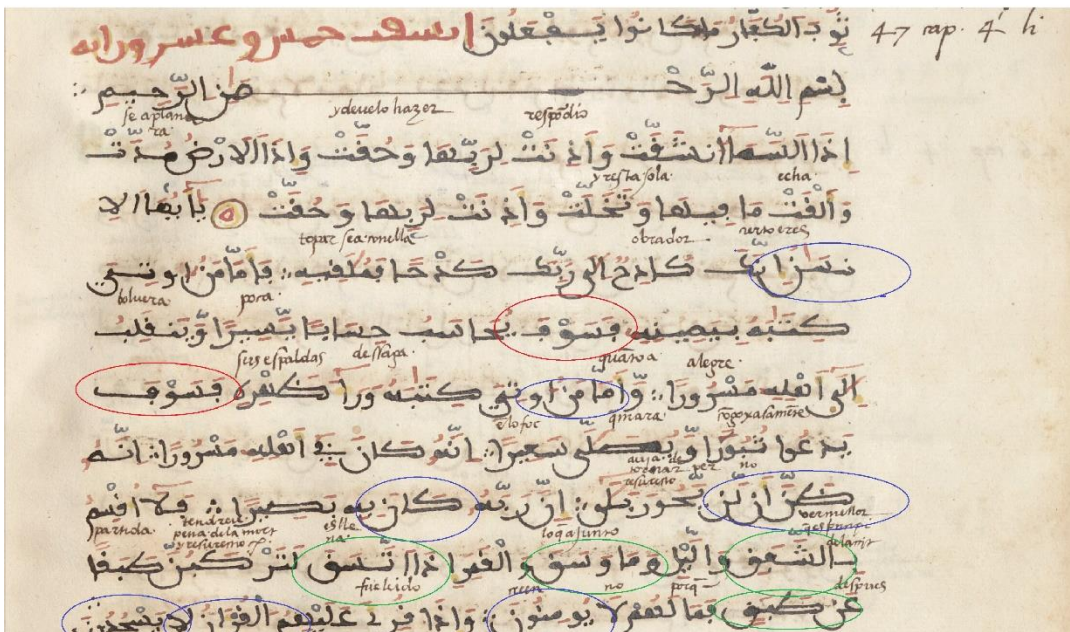 ثُوِّبَ الْكُفَّارُ مَا كَانُوا يَفْعَلُونَ انشقت خمس وعشرون اية 47 cap. 4 li
بِسْمِ اللَّهِ الرَّحْمَنِ الرَّحِيمِ
se aplanara ydeuelo hazer respōdio
اِذَا السَّمَا انشَقَّتْ وَاَذِنَتْ لِرَبِّهَا وَحُقَّتْ وَاِذَا الَارْضُ مُدَّتْ
y resta sola. echa.
وَاَلْقَتْ مَا فِيهَا وَتَخَلَّتْ وَاَذِنَتْ لِرَبِّهَا وَحُقَّتْ يَاَيُّهَا الِا
topar sea conella obrador.
نسَنُ اِنَّكَ كَادِحٌ اِلَى رَبِّكَ كَدْحًا فَمُلَقِيهِ فَاَمَّا مَنُ اوتِيَ
boluera. pora.
كِتَبَهُ بِيَمِينِهِ فَسَوْفَ يُحَاسَبُ حِسَابًا يَّسِيرًا وَّيَنقَلِبُ
sus espaldas quāto a alegre.
اِلَى اَهْلِهِ مَسْرُورًا وَّاَمَّا مَنُ اوتِيَ كِتَبَهُ وَرَا ظَهْرِهِ فَسَوْفَ
يَدْعُوا ثُبُورًا وَّيُصَلَّى سَعِيرًا اِنَّهُ كَانَ فِي اَهْلِهِ مَسْرُورًا اِنَّهُ
no
ظَنَّ اَن لَّن يَّحُورَ بَلَى اِنَّ رَبَّهُ كَانَ بِهِ بَصِيرًا فَلَا اُقْسِمُ
partida. loq̄ ajunto
بِالشَّفَقِ وَالَّيْلِ وَمَا وَسَقَ وَالْقَمَرِ اِذَا اتَّسَقَ لَتَرْكَبُنَّ طَبَقًا
fue leido no porq̄ despues
عَن طَبَقٍ فَمَا لَهُمْ لَا يُومِنُونَ وَاِذَا قُرِيَ عَلَيْهِمُ الْقُرَانُ لَا يَسْجُدُونَ